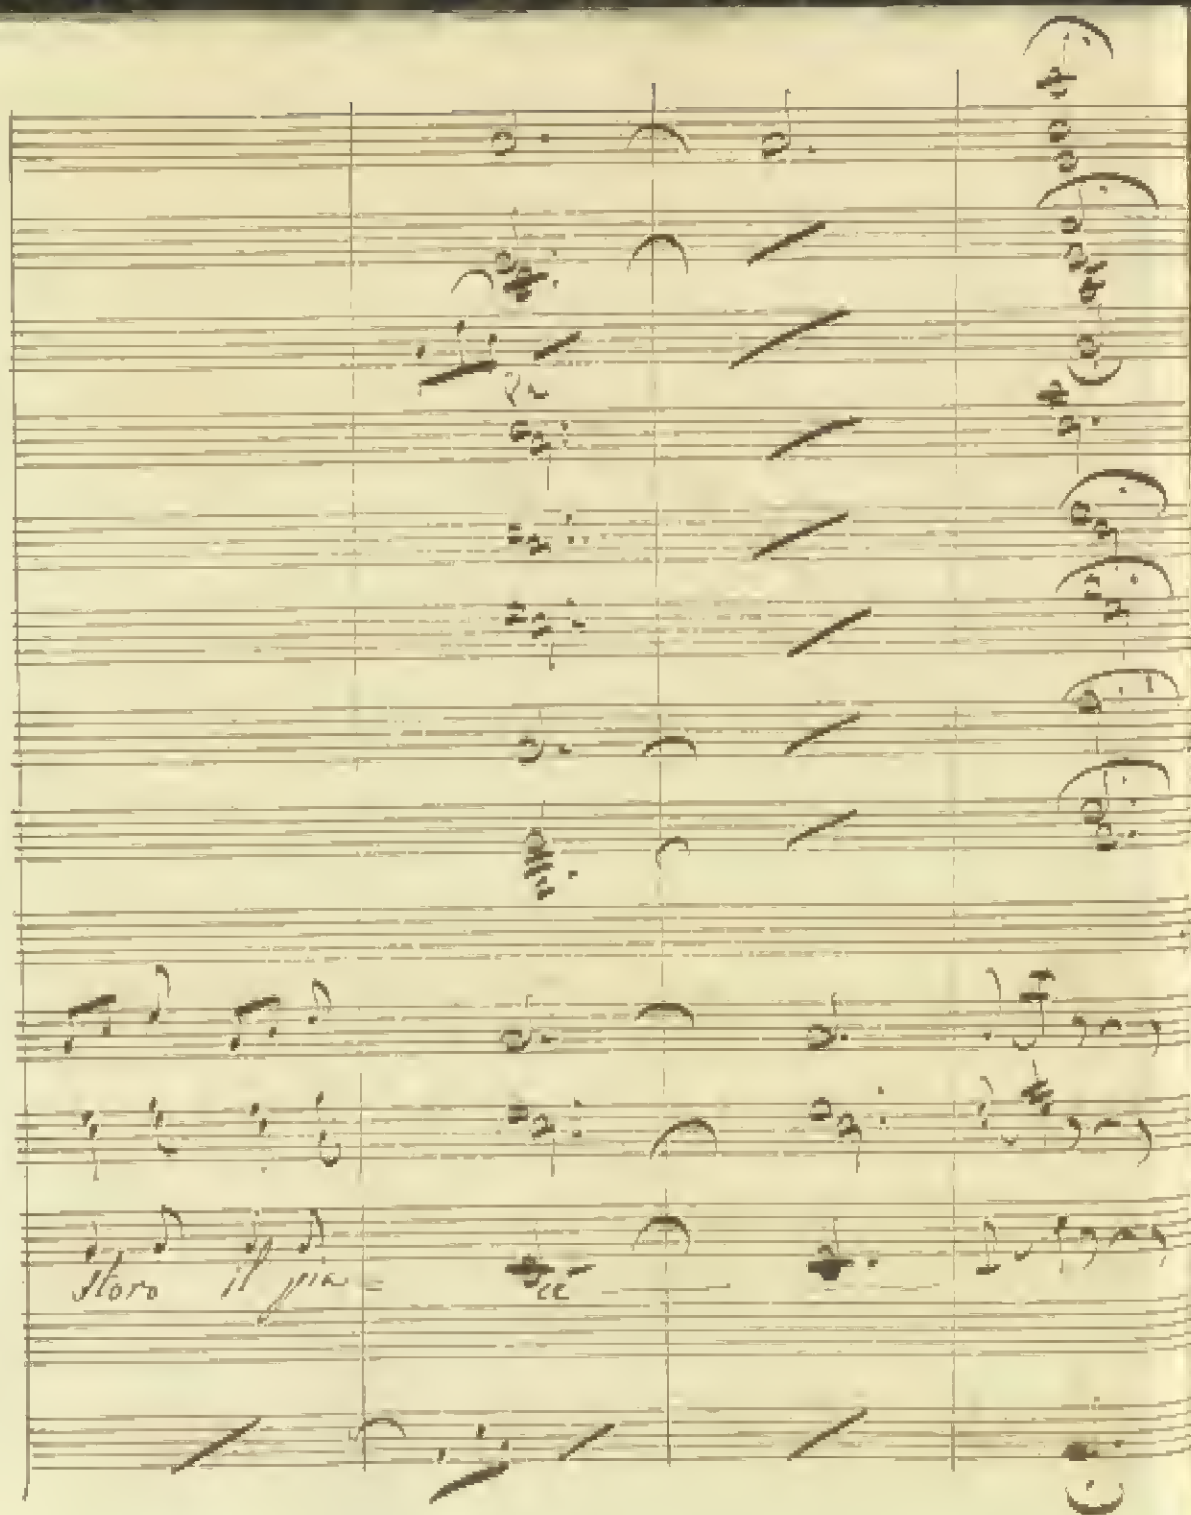 storo il pia = ce